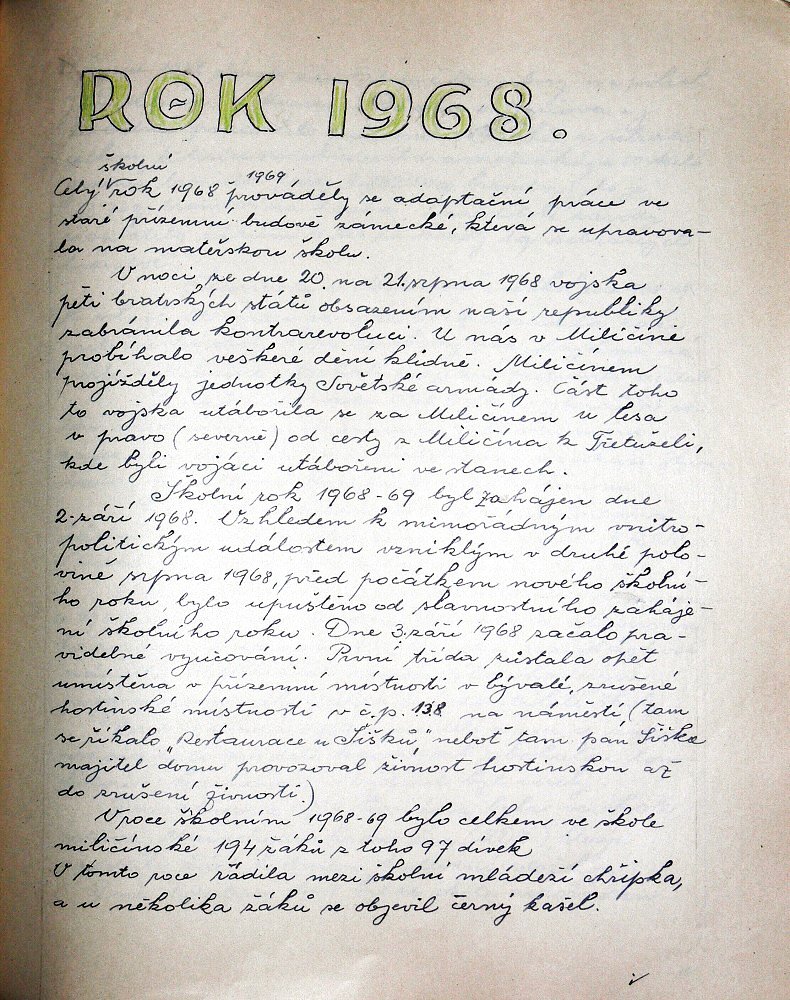 ROK 1968.
školní 1969
Celý rok 1968 - prováděly se adaptační práce ve
staré přízemní budově zámecké, která se upravova-
la na mateřskou školu.
V noci ze dne 20. na 21. srpna 1968 vojska
pěti bratrských států obsazením naší republiky
zabránila kontrarevoluci. U nás v Miličíně
probíhalo veškeré dění klidně. Miličínem
projížděly jednotky Sovětské armády. Část toho
to vojska utábořila se za Miličínem u lesa
v pravo (severně) od cesty z Miličína k Třetuželi,
kde byli vojáci utábořeni ve stanech.
Školní rok 1968-69 byl zahájen dne
2. září 1968. Vzhledem k mimořádným vnitro-
politickým událostem vzniklým v druhé polo-
vině srpna 1968, před počátkem nového školní-
ho roku, bylo upuštěno od slavnostního záháje-
ní školního roku. Dne 3. září 1968 začalo pra-
videlné vyučování. První třída zůstala opět
umístěna v přízemní místnosti v bývalé, zrušené
hostinské místnosti v č.p. 138 na náměstí (tam
se říkalo „Restaurace u Šišků," neboť tam pan Šiška
majitel domu provozoval živnost hostinskou až
do zrušení živnosti.)
V roce školním 1968-69 bylo celkem ve škole
miličínské 194 žáků z toho 97 dívek
V tomto roce řádila mezi školní mládeží chřipka,
a u několika žáků se objevil černý kašel.